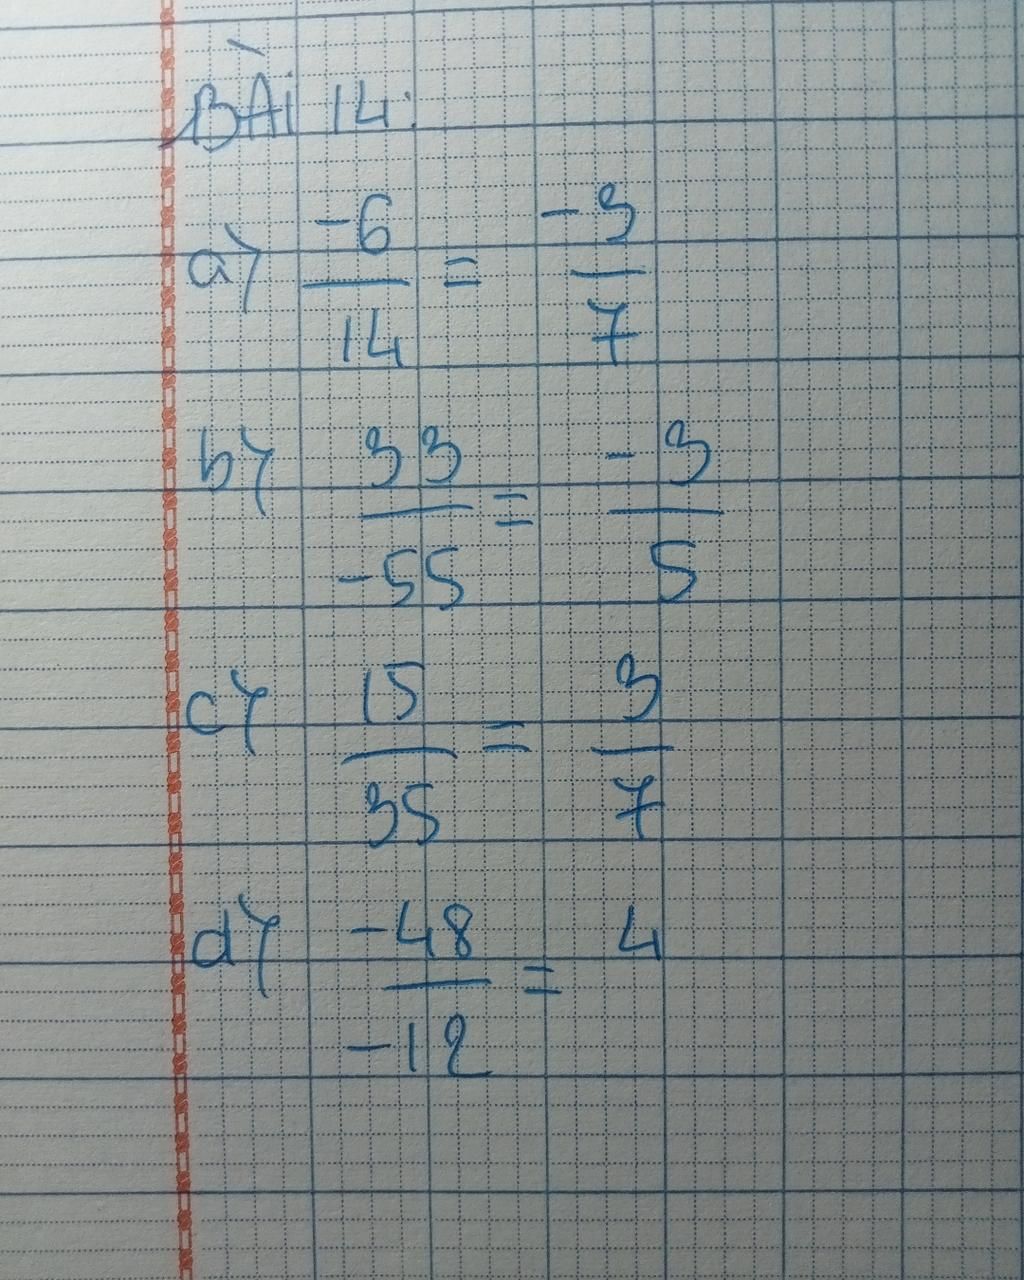 BÀi 14:
a) -6/14 = -3/7
b) 33/-55 = -3/5
c) 15/35 = 3/7
d) -48/-12 = 4